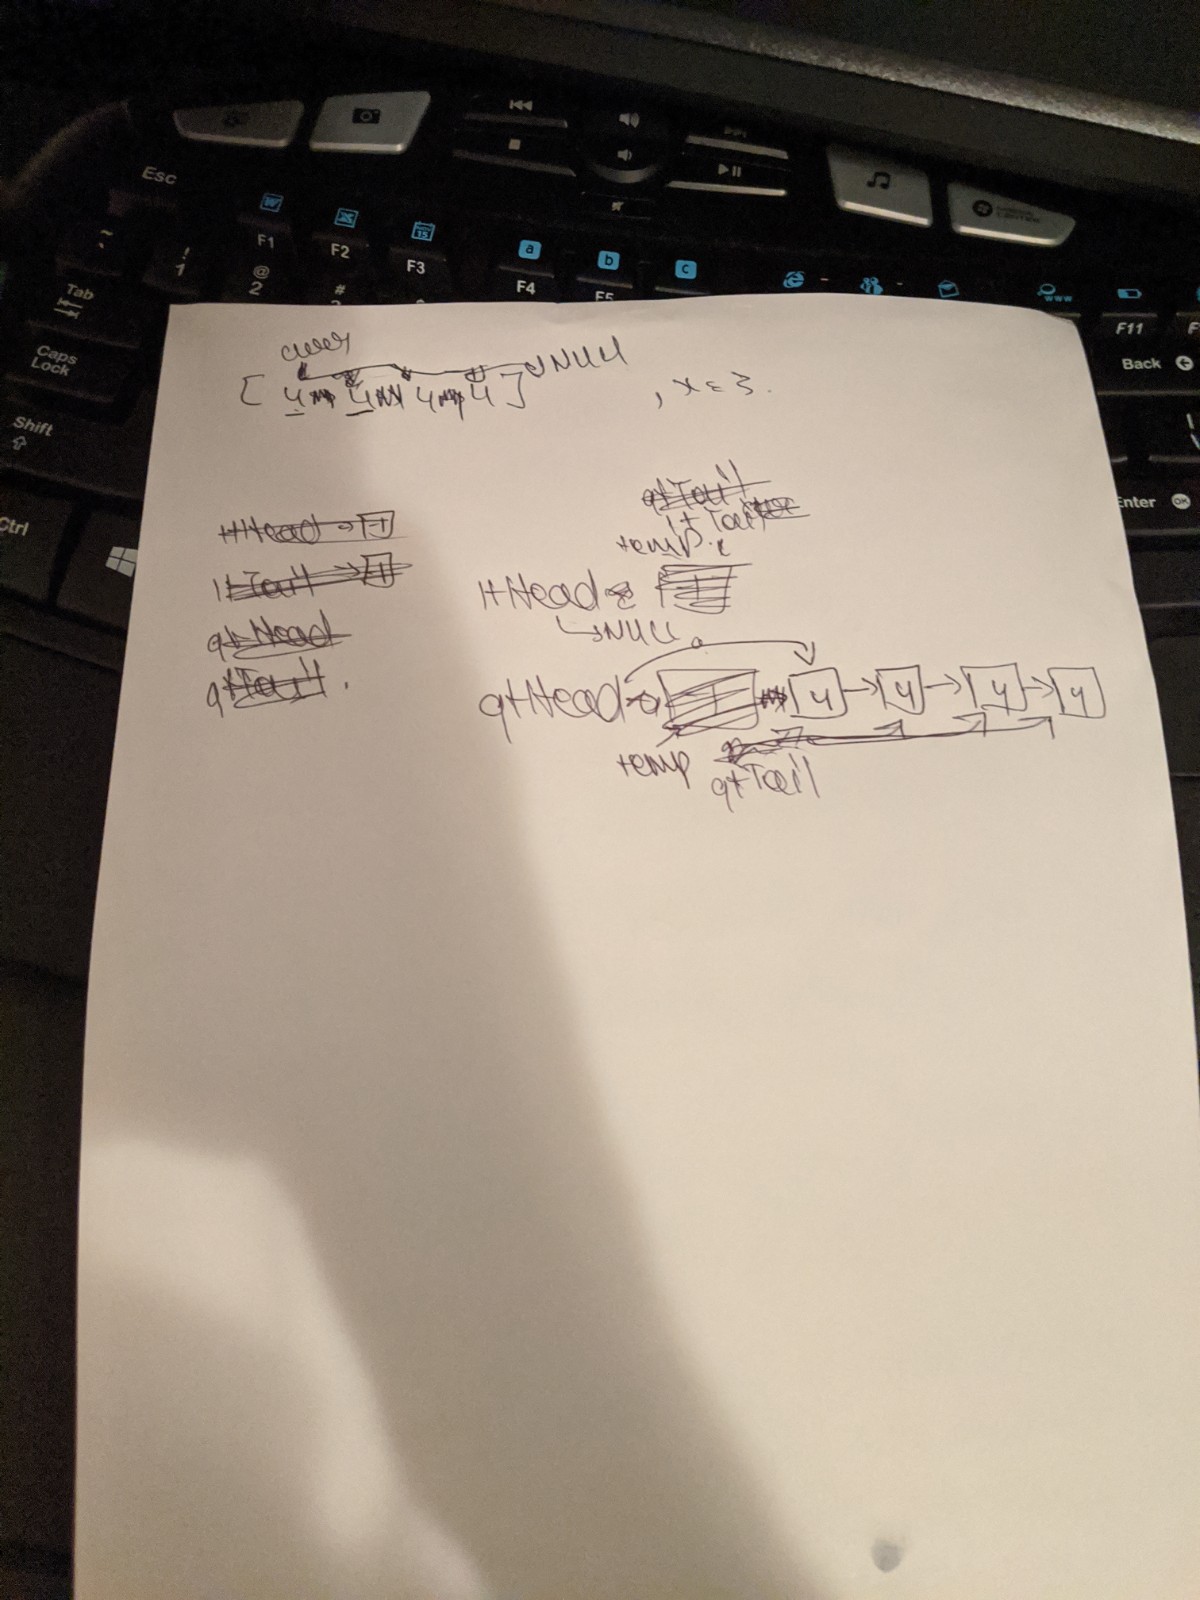 Esc
F1
F2
F3
a
F4
b
F5
c
www
F11
~
!
1
@
2
#
Tab
Caps
Lock
Shift
Ctrl
Back
Enter
OK
curr
NULL
[ 4 4 4 4 ]
, x = 3.
ltHead → [-1]
ltTail → [-1]
gtHead
gtTail.
gtTail
ltTail
temp
ltHead
↳NULL
gtHead → 4 → 4 → 4 → 4
temp
gtTail